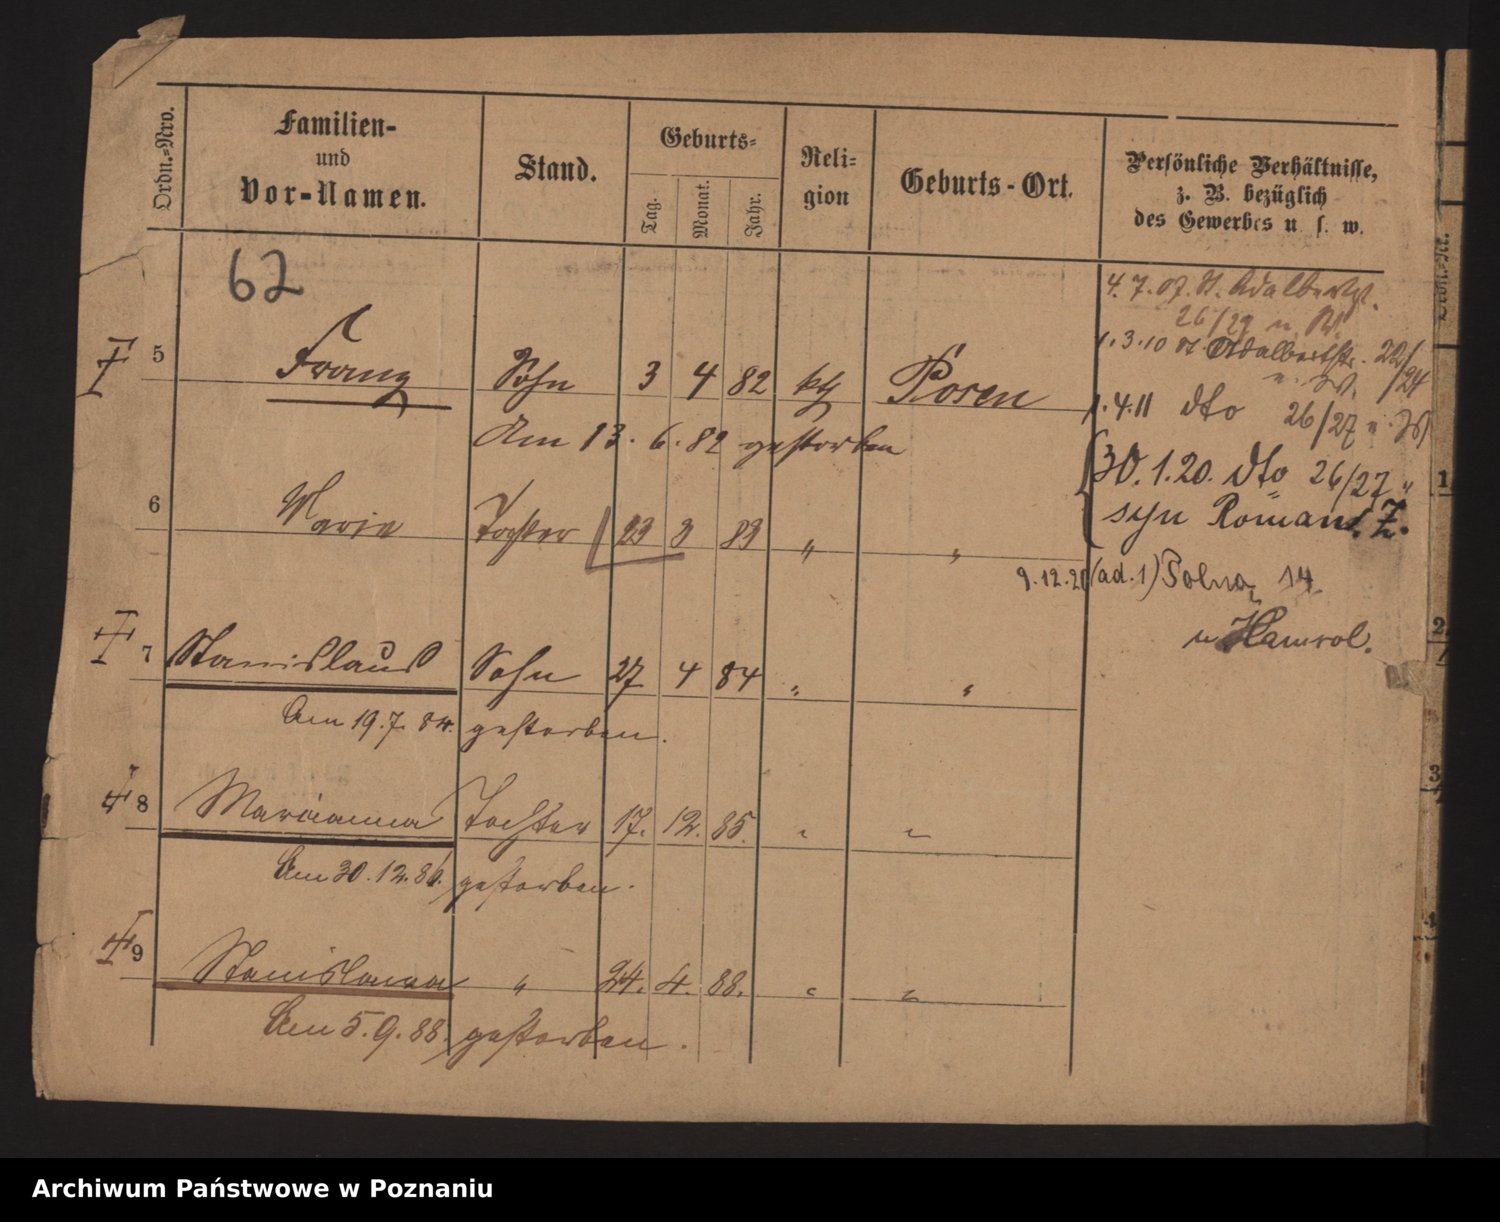 Ordn.=Nro.
Familien-
und
Vor-Namen.
Stand.
Geburts=
Tag.
Monat.
Jahr.
Reli=
gion
Geburts-Ort.
Persönliche Verhältnisse,
z. B. bezüglich
des Gewerbes u. s. w.
62
4.7.07. St. Adalbertst.
26/29 u. W.
1.3.10 St. Adalbertstr. 22/24
u. W.
5 Franz Sohn 3 4 82 kth Posen
1.4.11 dto 26/27 u. W
Am 13. 6. 82 gestorben
30.1.20. dto 26/27 "
syn Roman. Z.
6 Marie Tochter 23 3 83 " "
9.12.20 (ad.1) Polna 14
u Hamrol.
7 Stanislaus Sohn 27 4 84 " "
Am 19.7. 84. gestorben.
8 Marianna Tochter 17. 12. 85. " "
Am 30.12.86. gestorben.
9 Stanislawa " 24. 4. 88. " "
Am 5.9.88. gestorben.
Archiwum Państwowe w Poznaniu